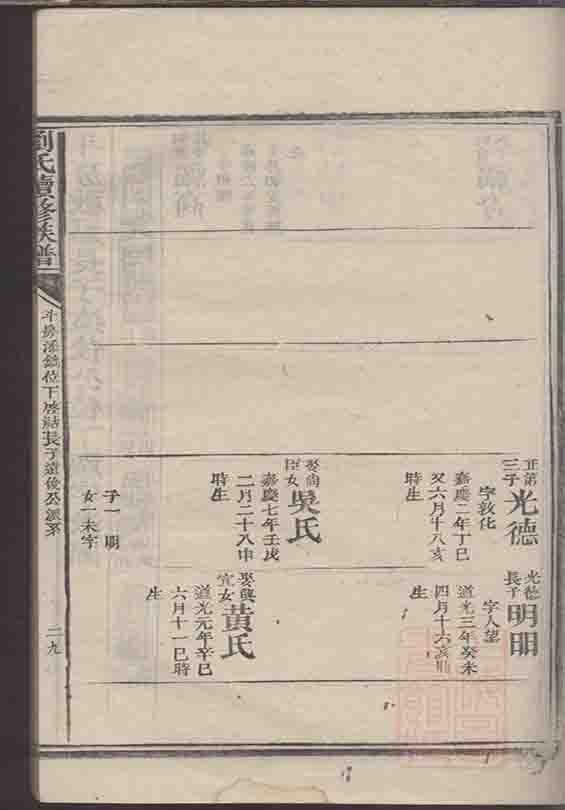 正第
三子
光德
字敦化
嘉慶二年丁巳
又六月十八亥
時生
娶尚
臣女
吳氏
嘉慶七年壬戌
二月二十八申
時生
子一 明
女一未字
光德
長子
明
字人望
道光三年癸未
四月十六亥時
生
娶興
宜女
黃氏
道光元年辛巳
六月十一巳時
生
劉氏續修族譜
位下
長子遠俊公派系
二九